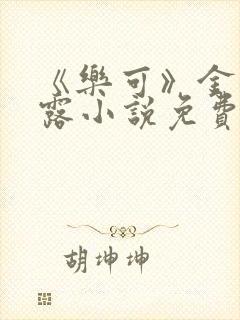 《樂可》金
露小說免費
胡坤坤